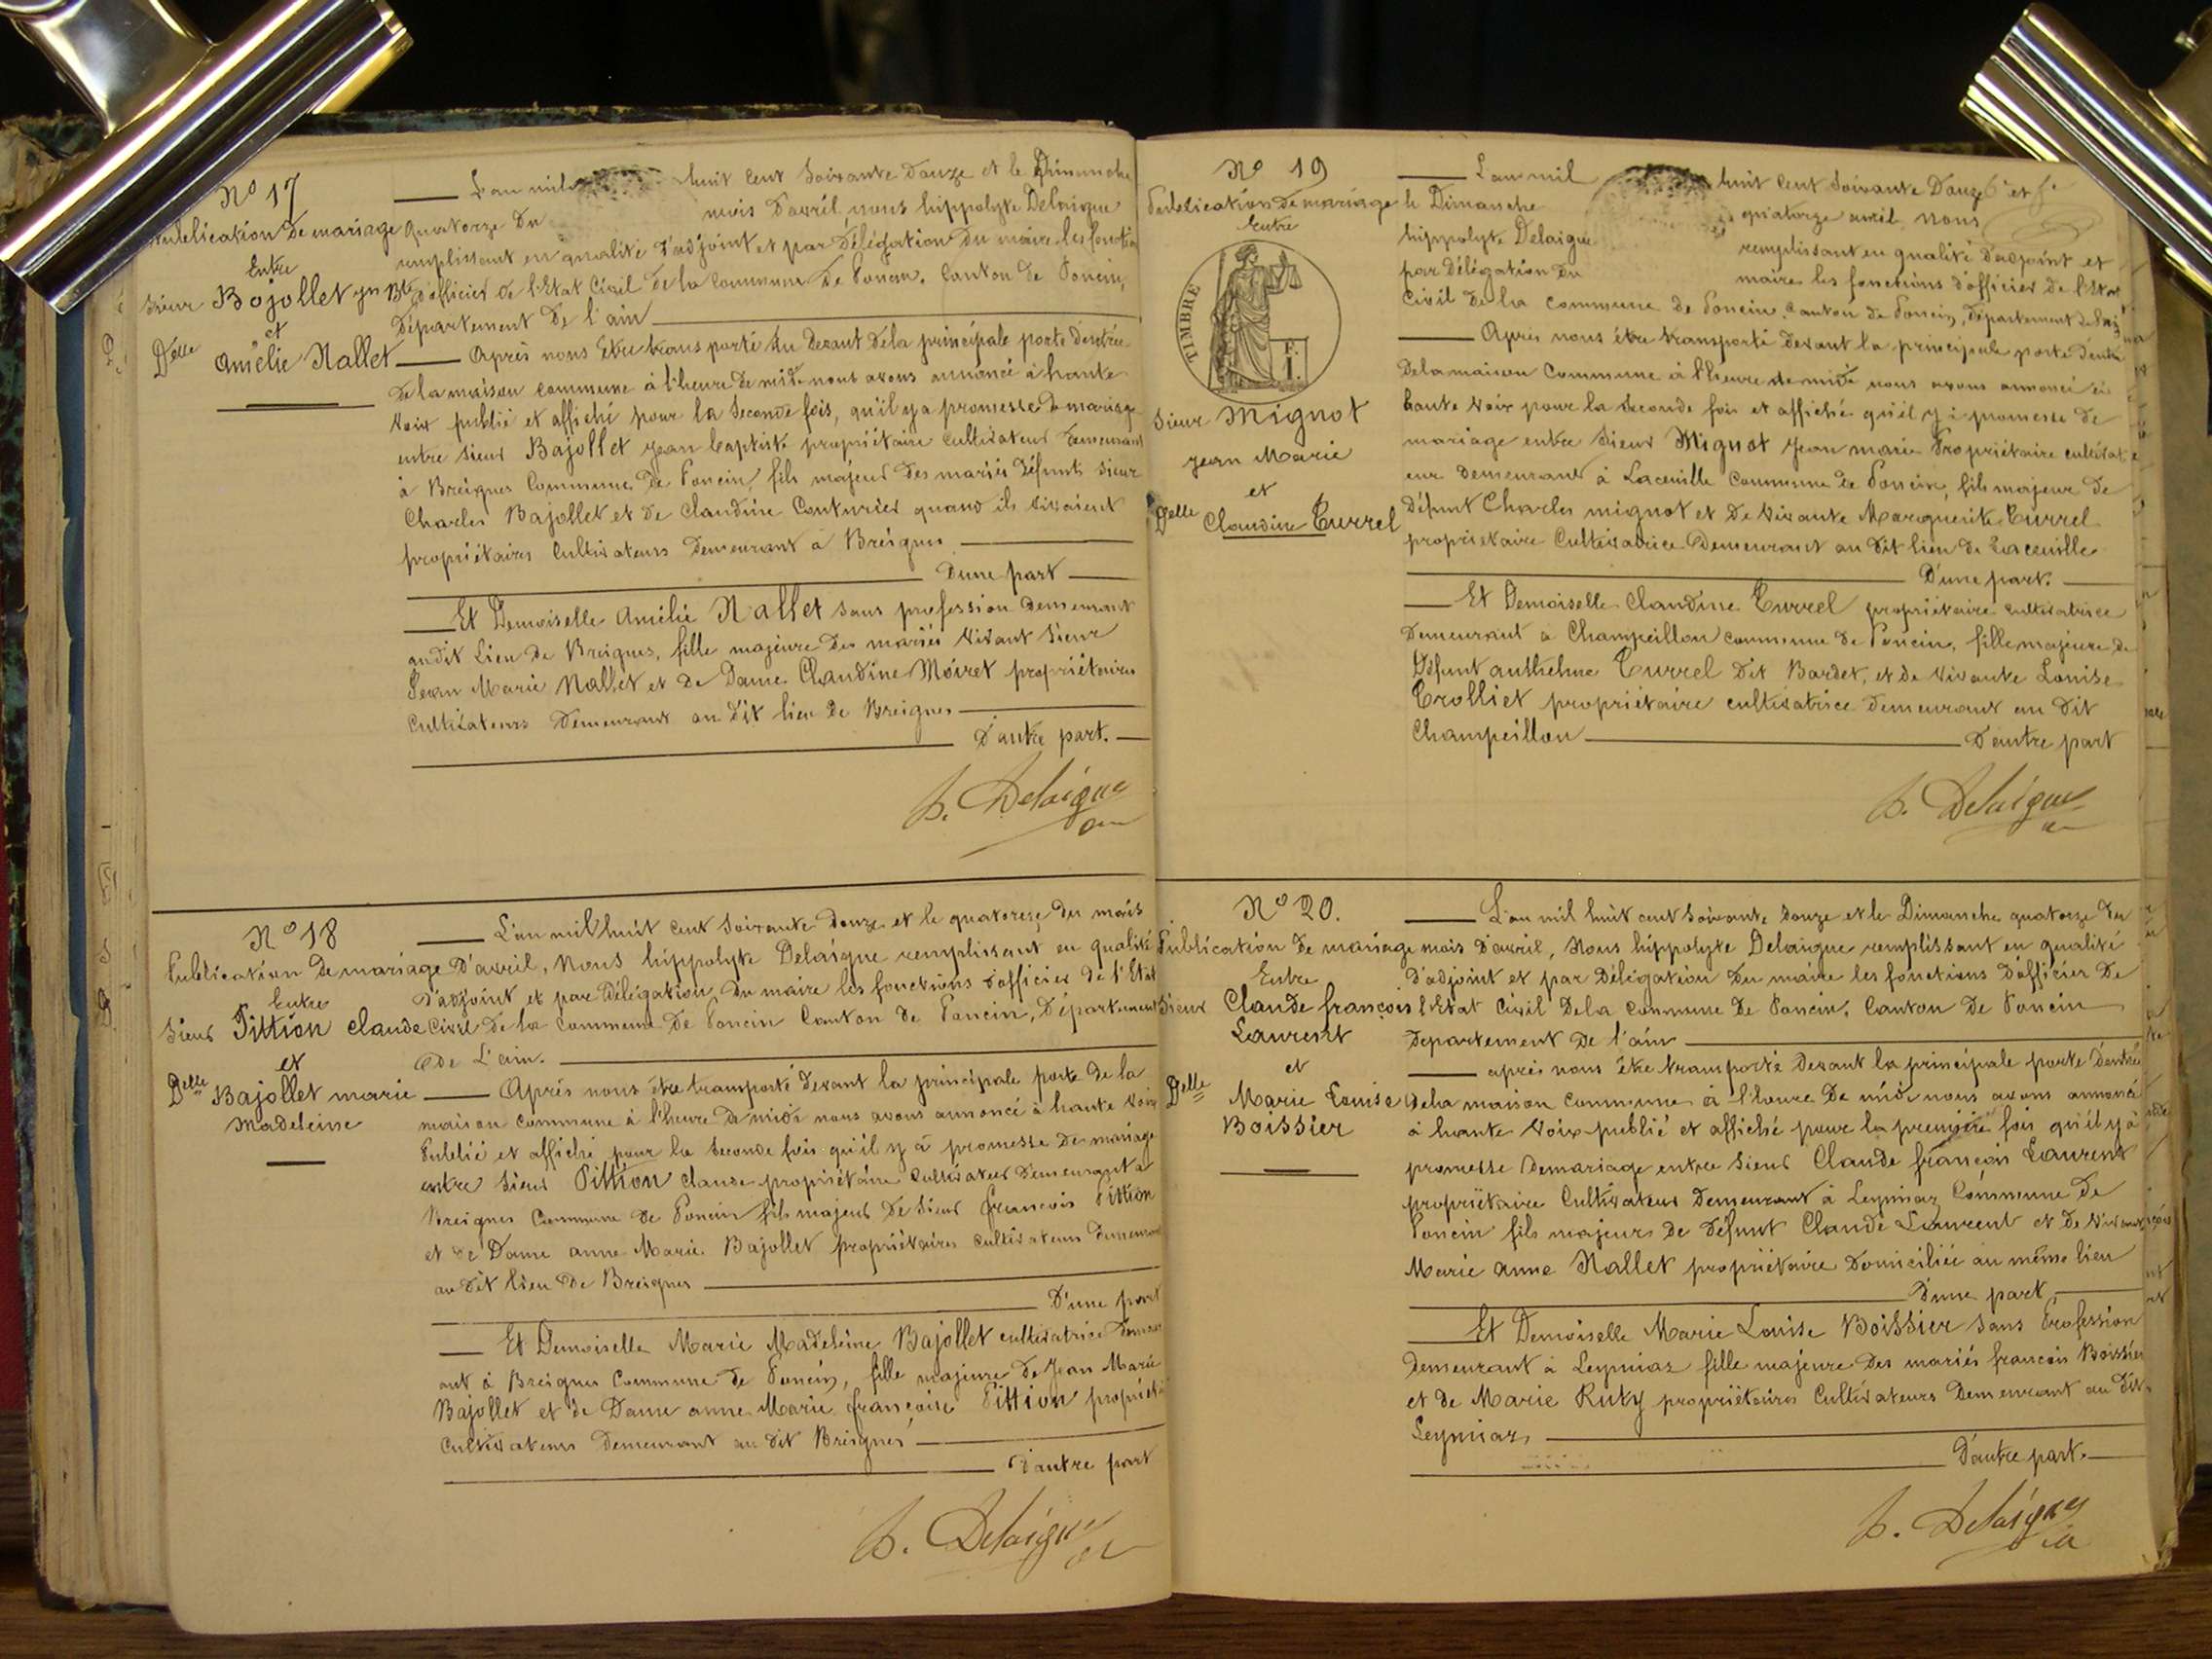 N° 17
Publication de mariage
Entre
Sieur Bajollet Jn Bte
et
Delle Amélie Nallet
L'an mil huit cent soixante douze et le Dimanche
quatorze du mois d'avril, nous hippolyte Delaigue
remplissant en qualité d'adjoint et par délégation du maire les fonctions
d'officier de l'Etat Civil de la Commune de Poncin, Canton de Poncin,
département de l'ain
Après nous être transporté au devant de la principale porte d'entrée
de la maison commune à l'heure de midi nous avons annoncé à haute
voix publié et affiché pour la seconde fois, qu'il y a promesse de mariage
entre sieur Bajollet jean baptiste propriétaire cultivateur demeurant
à Breignes Commune de Poncin, fils majeur des mariés défunts sieur
Charles Bajollet et de Claudine Couturier quand ils vivaient
propriétaires cultivateurs demeurant à Breignes
D'une part
Et Demoiselle Amélie Nallet sans profession demeurant
audit lieu de Breignes, fille majeure des mariés vivant sieur
Jean Marie Nallet et de Dame Claudine Moiret propriétaires
cultivateurs demeurant au dit lieu de Breignes
D'autre part.
h. Delaigue
N° 18
Publication de mariage
Entre
Sieur Pittion Claude
et
Delle Bajollet marie
Madeleine
L'an mil huit cent soixante douze et le quatorze du mois
D'avril, Nous hippolyte Delaigue remplissant en qualité
d'adjoint et par délégation du maire les fonctions d'officier de l'Etat
Civil de la Commune de Poncin Canton de Poncin, Département
de L'ain.
Après nous être transporté devant la principale porte de la
maison commune à l'heure de midi nous avons annoncé à haute voix
Publié et affiché pour la seconde fois qu'il y a promesse de mariage
entre sieur Pittion claude propriétaire cultivateur demeurant à
Breignes Commune de Poncin fils majeur de sieur françois Pittion
et de Dame anne Marie Bajollet propriétaires cultivateurs demeurant
au dit lieu de Breignes
D'une part
Et Demoiselle Marie Madeleine Bajollet cultivatrice demeur
ant à Breignes Commune de Poncin, fille majeure de Jean Marie
Bajollet et de Dame anne Marie françoise Pittion propriét
cultivateurs demeurant au dit Breignes
d'autre part
h. Delaigue
N° 19
Publication de mariage
Entre
TIMBRE
F.
1.
Sieur Mignot
jean Marie
et
Delle Claudine Turrel
L'an mil huit cent soixante Douze et
le Dimanche quatorze avril nous
hippolyte Delaigue remplissant en qualité d'adjoint et
par délégation du maire les fonctions d'officier de l'Etat
Civil de la commune de Poncin, Canton de Poncin, département de l'ain
Après nous être transporté devant la principale porte d'entrée
de la maison Commune à l'heure de midi nous avons annoncé à
haute voix pour la seconde fois et affiché qu'il y a promesse de
mariage entre sieur Mignot Jean marie Propriétaire cultivat
eur demeurant à Lacueille Commune de Poncin, fils majeur de
défunt Charles mignot et de vivante Marguerite Turrel
propriétaire cultivatrice demeurant au dit lieu de Lacueille
D'une part.
Et Demoiselle Claudine Turrel propriétaire cultivatrice
demeurant à Champeillon commune de Poncin, fille majeure de
Défunt anthelme Turrel dit Bardet, et de vivante Louise
Trolliet propriétaire cultivatrice demeurant au dit
Champeillon D'autre part
h. Delaigue
N° 20.
Publication de mariage
Entre
Sieur Claude françois
Laurent
et
Delle Marie Louise
Boissier
L'an mil huit cent soixante douze et le Dimanche quatorze du
mois d'avril, Nous hippolyte Delaigue remplissant en qualité
d'adjoint et par Délégation du maire les fonctions d'officier de
l'Etat Civil de la commune de Poncin, Canton de Poncin
département de l'ain
après nous être transporté devant la principale porte d'entrée
de la maison commune à l'heure de midi nous avons annoncé
à haute voix publié et affiché pour la première fois qu'il y a
promesse de mariage entre sieur Claude françois Laurent
propriétaire Cultivateur demeurant à Leymiaz Commune de
Poncin fils majeur de défunt Claude Laurent et de vivante
Marie anne Nallet propriétaire domiciliée au même lieu
D'une part,
Et Demoiselle Marie Louise Boissier sans Profession
demeurant à Leymiaz fille majeure des mariés françois Boissier
et de Marie Ruty propriétaires cultivateurs demeurant au dit
Leymiaz,
D'autre part.
h. Delaigue